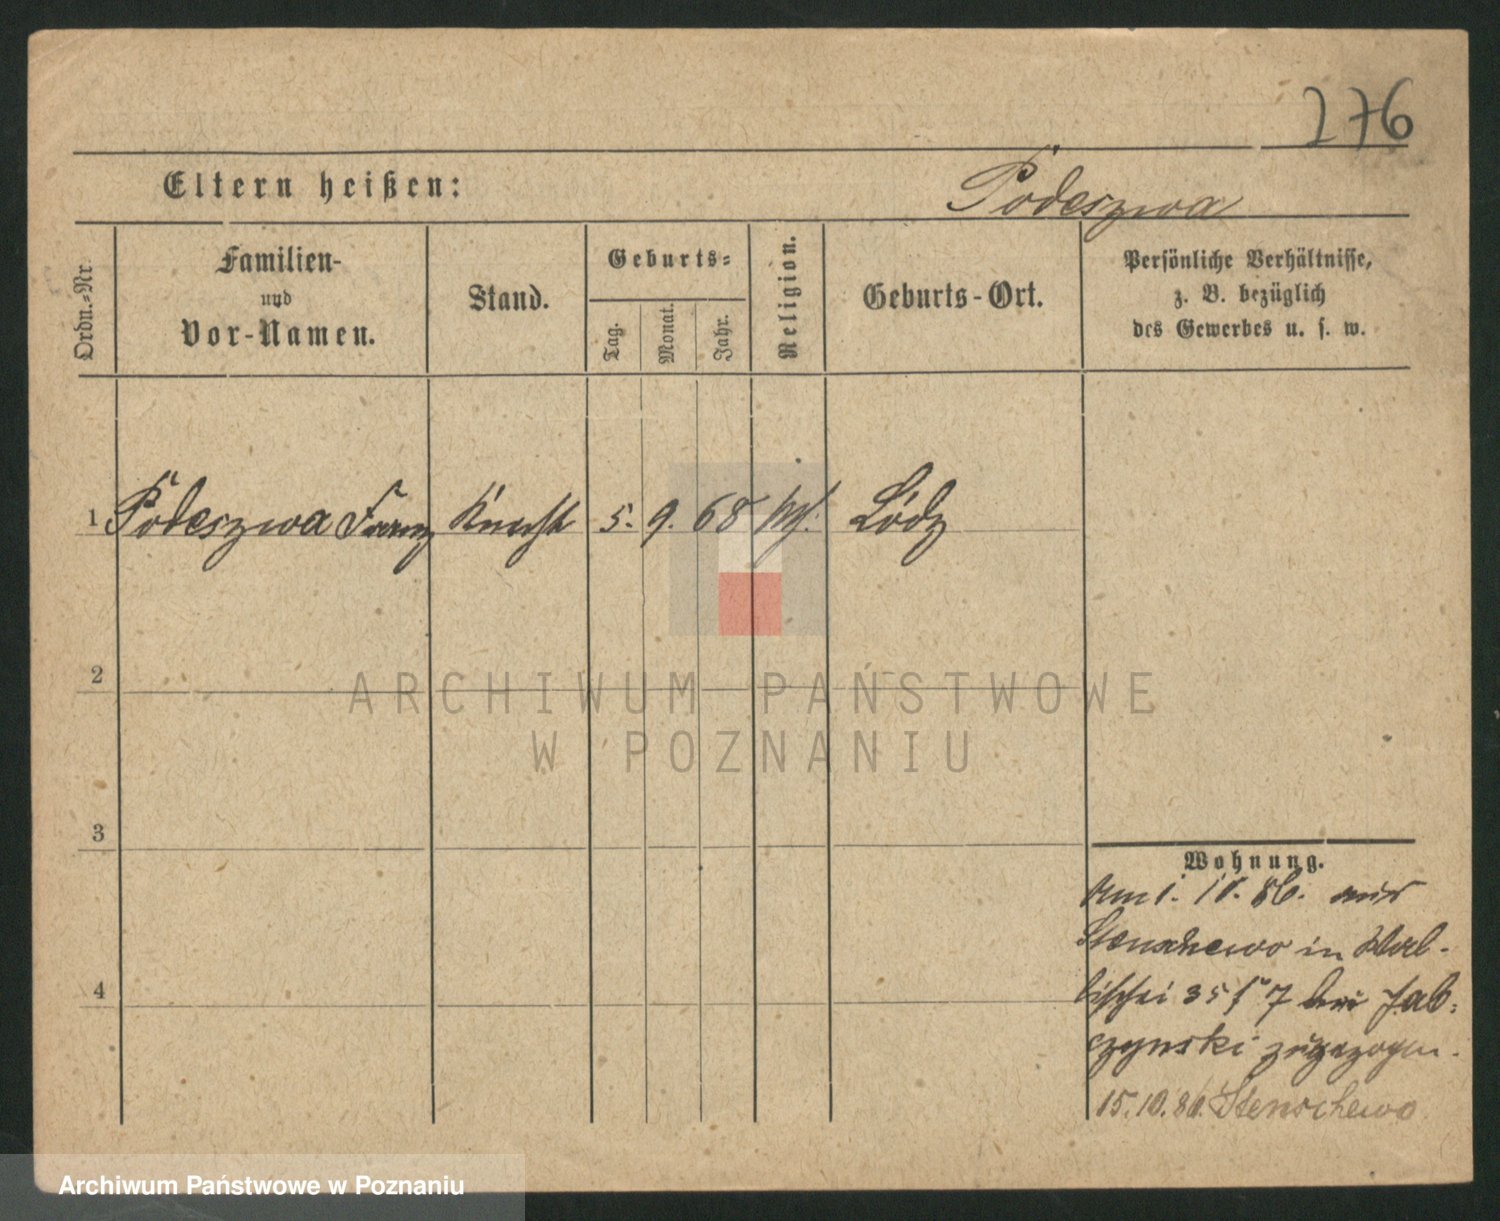 276
Eltern heißen:
Podeszwa
Ordn.-Nr.
Familien-
und
Vor-Namen.
Stand.
Geburts-
Tag.
Monat.
Jahr.
Religion.
Geburts-Ort.
Persönliche Verhältnisse,
z. B. bezüglich
des Gewerbes u. s. w.
1 Podeszwa Franz Knecht 5. 9. 68 kth. Lódz
2
3
4
Wohnung.
am 1. 10. 86. aus
Stenschewo in Wal-
lischei 35 f 7 bei Jab-
czynski zugezogen.
15.10.86. Stenschewo
ARCHIWUM PAŃSTWOWE
W POZNANIU
Archiwum Państwowe w Poznaniu